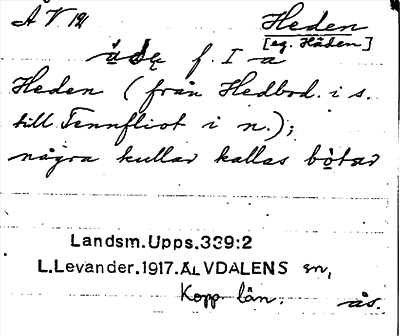 Å V 121 Heden
[eg. Häden]
f. I a
Heden (från Hedbod. i s.
till Tennfliot i n.);
några kullar kallas bötar
Landsm.Upps.339:2
L.Levander.1917.ÄLVDALENS sn,
Kopp. län. ås.